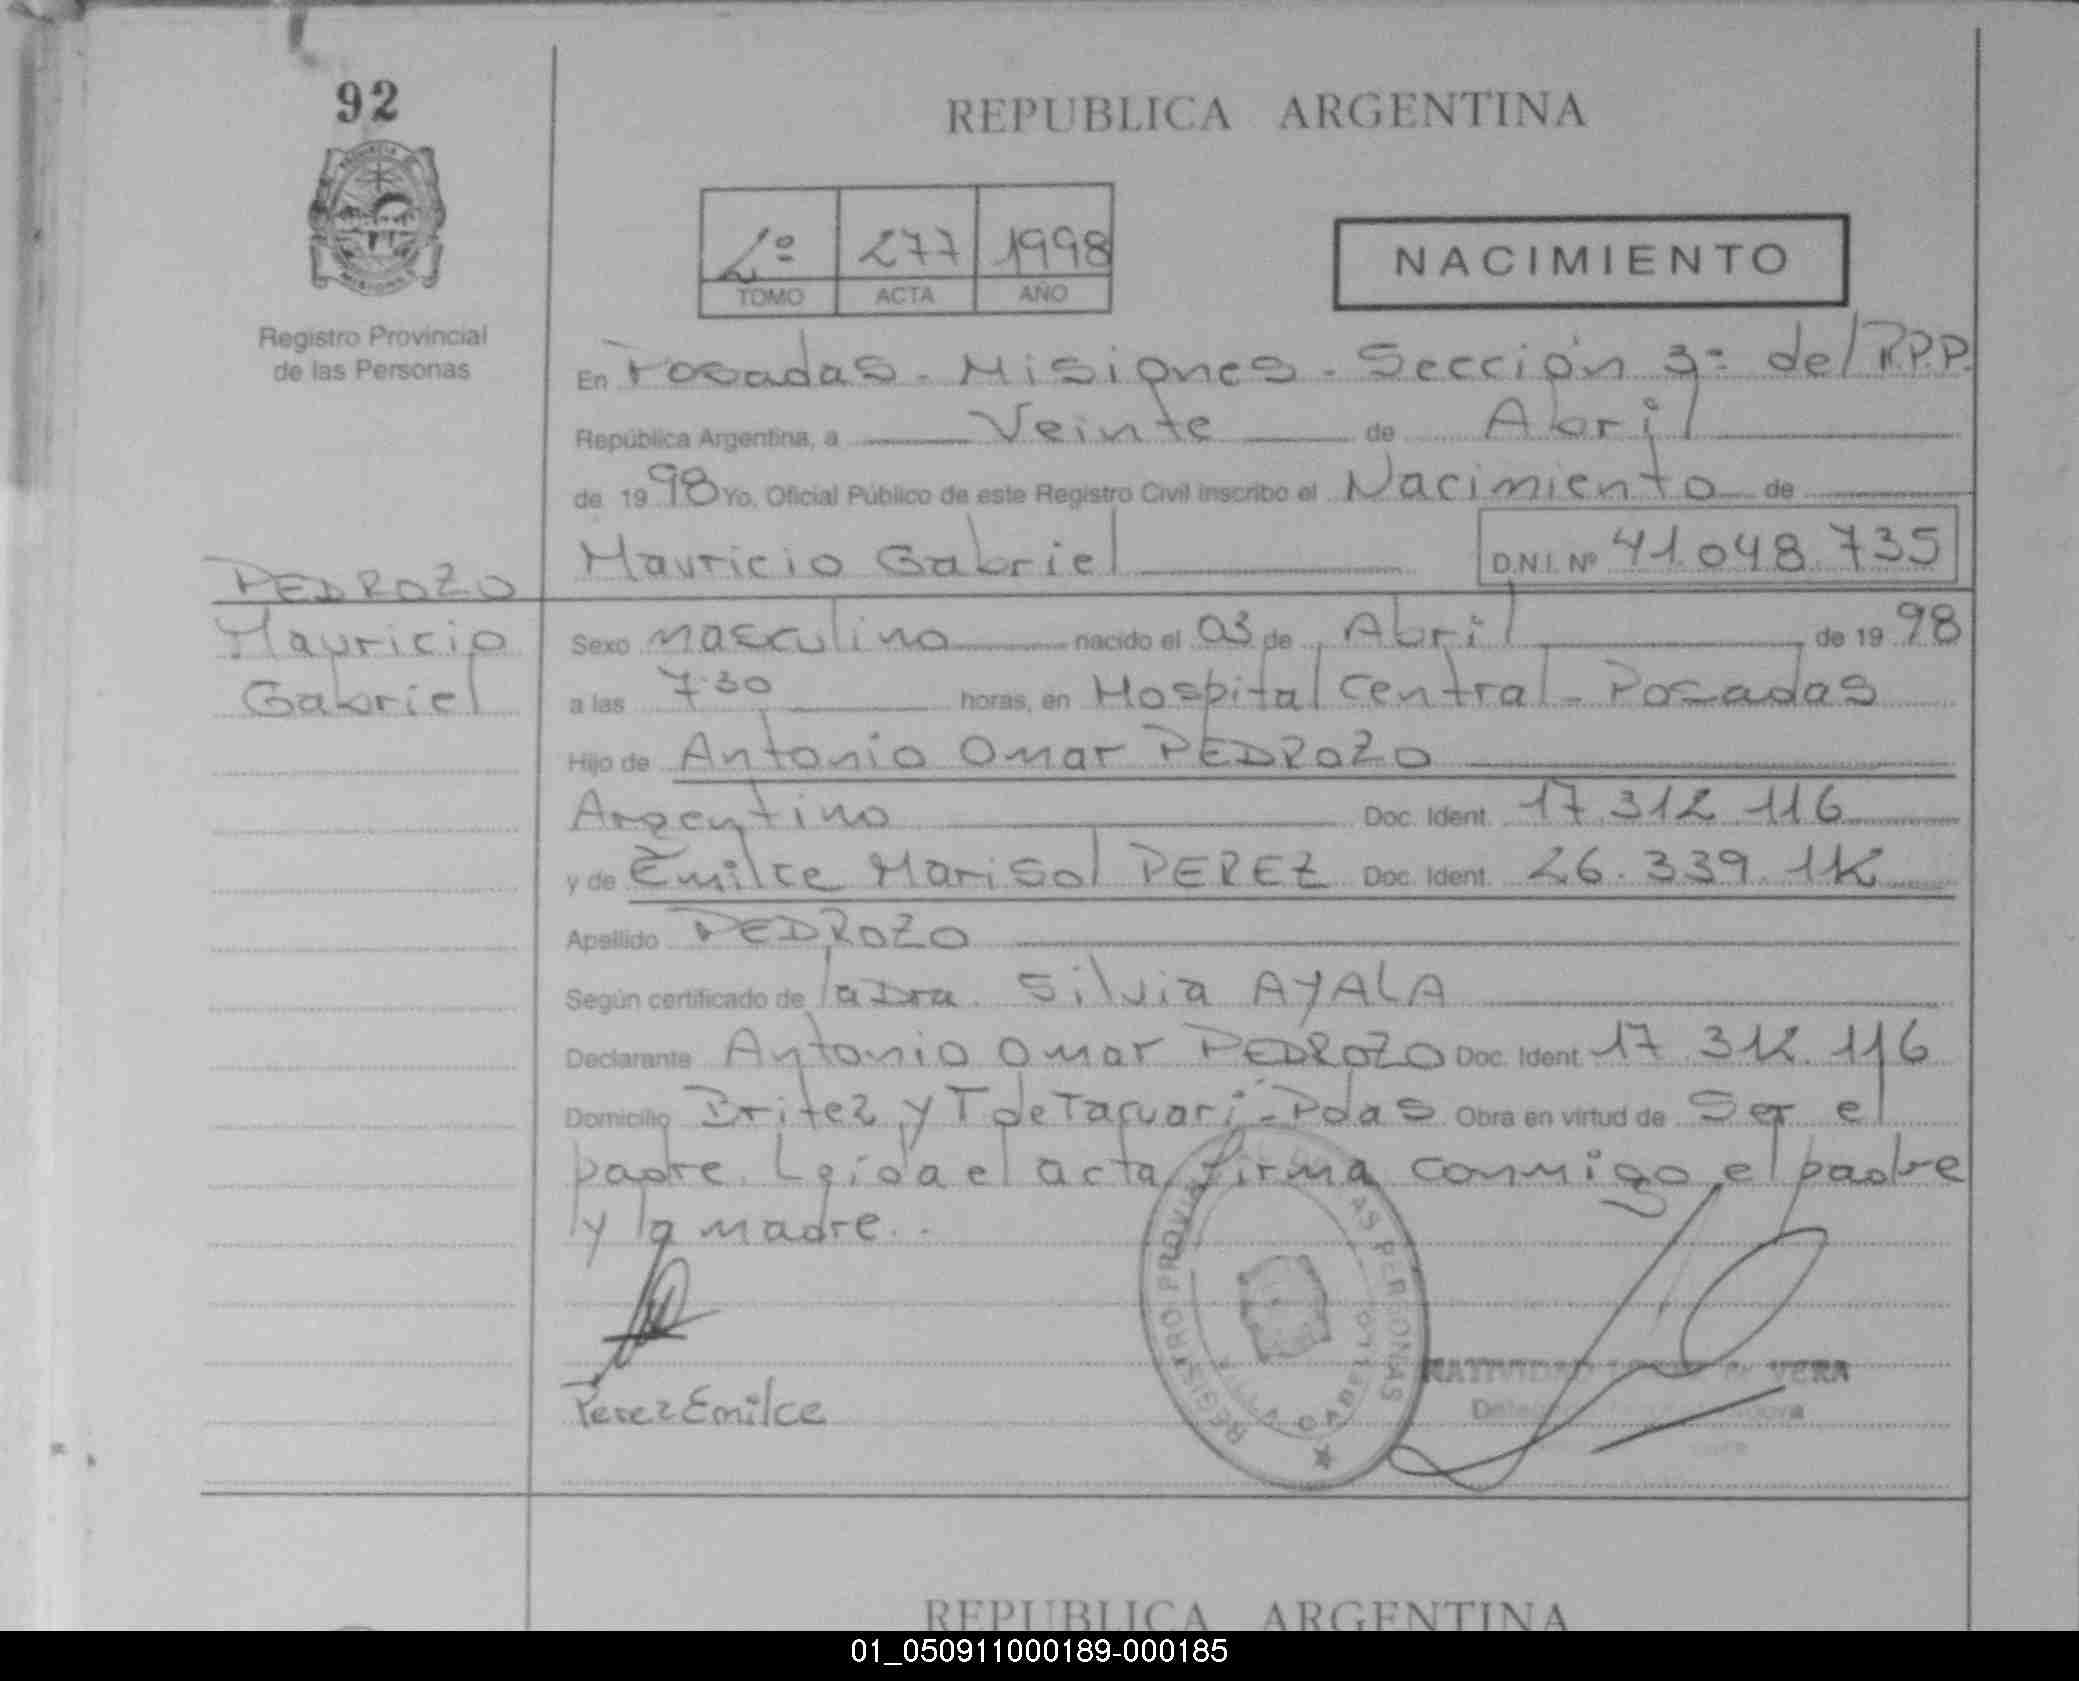 92
REPUBLICA ARGENTINA
2º 277 1998
TOMO ACTA AÑO
NACIMIENTO
Registro Provincial
de las Personas
En Posadas - Misiones - Sección 3º del R.P.P.
República Argentina, a Veinte de Abril
de 1998 Yo, Oficial Público de este Registro Civil inscribo el Nacimiento de
Mauricio Gabriel D.N.I. Nº 41.048.735
PEDROZO
Mauricio
Gabriel
Sexo masculino nacido el 03 de Abril de 1998
a las 7:30 horas, en Hospital Central - Posadas
Hijo de Antonio Omar PEDROZO
Argentino Doc. Ident. 17.312.116
y de Emilce Marisol PEREZ Doc. Ident. 26.339.112
Apellido PEDROZO
Según certificado de la Dra. Silvia AYALA
Declarante Antonio Omar PEDROZO Doc. Ident. 17.312.116
Domicilio Britez y T de Tacuari - Pdas Obra en virtud de Ser el
padre. Leída el acta, firma conmigo el padre
y la madre..
REGISTRO PROVINCIAL DE LAS PERSONAS
NATIVIDAD VERA
Perez Emilce
REPUBLICA ARGENTINA
01_050911000189-000185